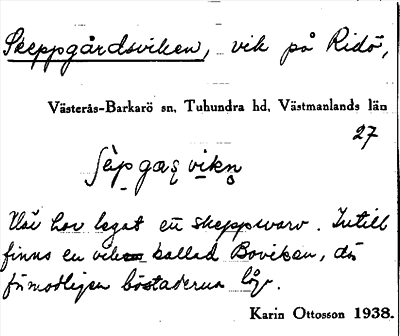 Skeppgårdsviken, vik på Ridö,
Västerås-Barkarö sn, Tuhundra hd, Västmanlands län
27
vikn̥
Här har legat ett skeppsvarv. Intill
finns en vik kallad Boviken, där
förmodligen bostäderna låg.
Karin Ottosson 1938.